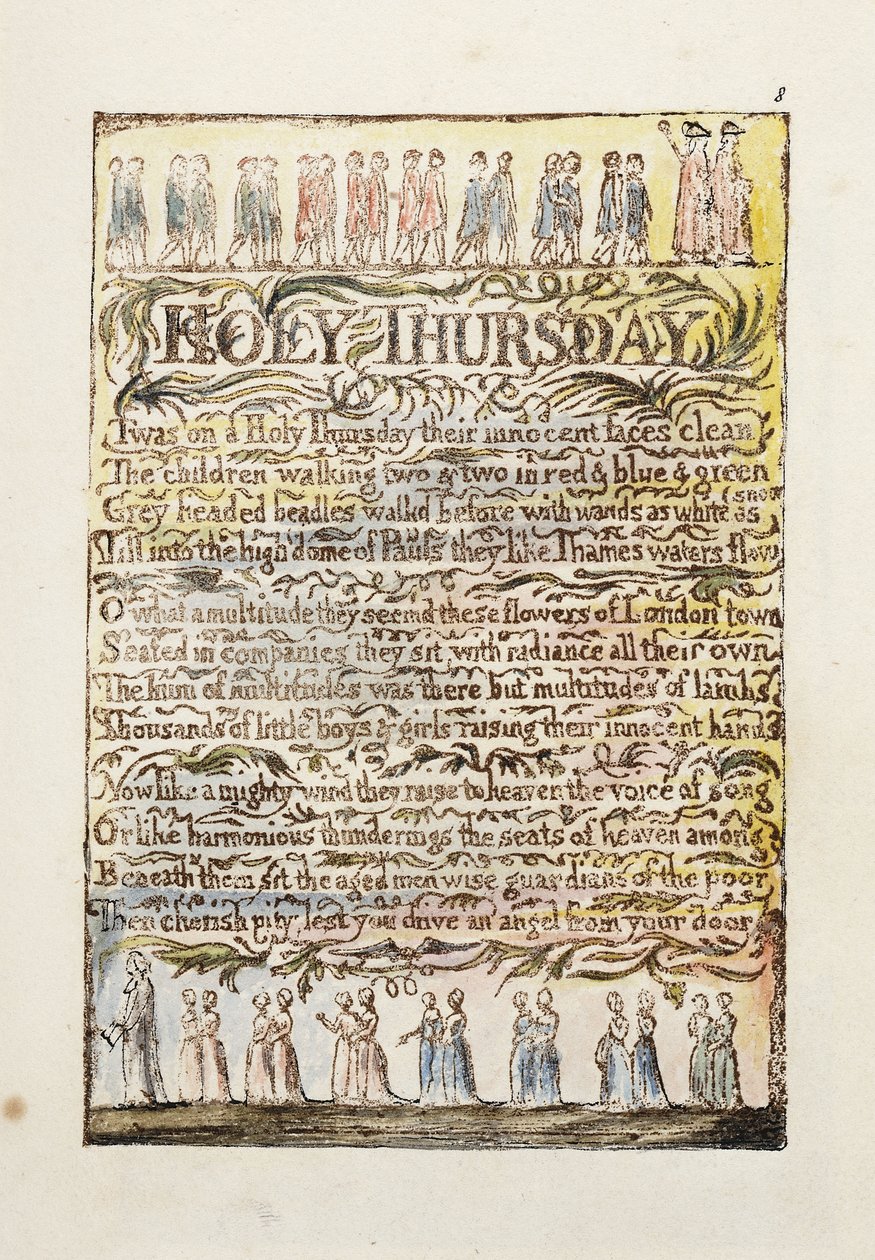 8
HOLY THURSDAY
Twas on a Holy Thursday their innocent faces clean
The children walking two & two in red & blue & green
Grey headed beadles walkd before with wands as white as snow
Till into the high dome of Pauls they like Thames waters flow
O what a multitude they seemd these flowers of London town
Seated in companies they sit with radiance all their own
The hum of multitudes was there but multitudes of lambs
Thousands of little boys & girls raising their innocent hands
Now like a mighty wind they raise to heaven the voice of song
Or like harmonious thunderings the seats of heaven among
Beneath them sit the aged men wise guardians of the poor
Then cherish pity, lest you drive an angel from your door